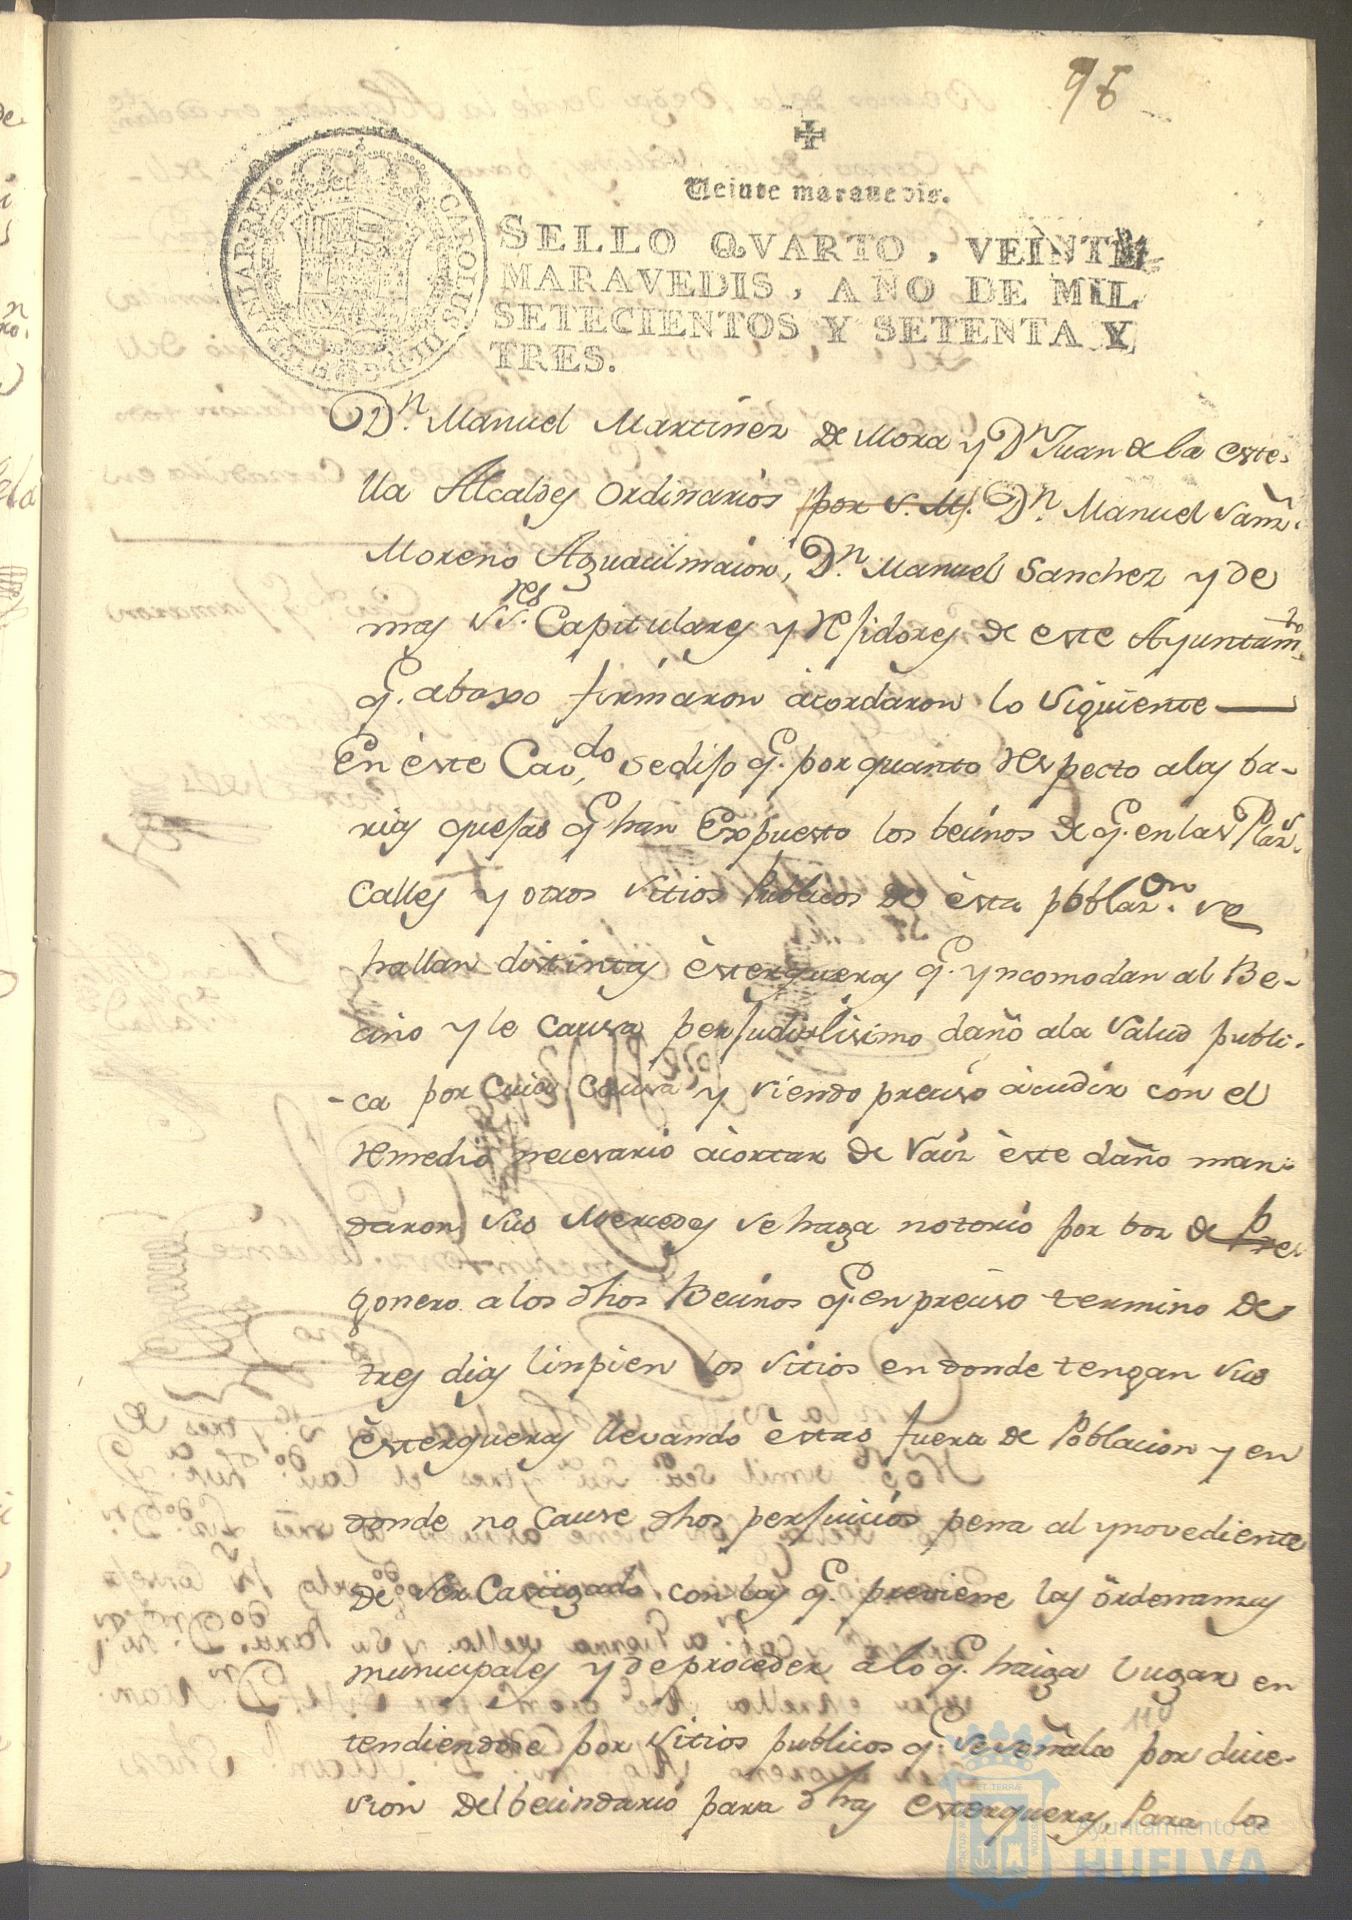 96
✠
Veinte maravedis.
SELLO QVARTO, VEINTE
MARAVEDIS, AÑO DE MIL
SETECIENTOS Y SETENTA Y
TRES.
CAROLUS III D G HISPANIAR REX
Dn. Manuel Martinez de Mora y Dn Juan de la estre
lla Alcaldes ordinarios por S. M. Dn. Manuel Sanz.
Moreno Aguacilmaior, Dn. Manuel Sanchez y de
mas SS.res Capitulares y Residores de este Ayuntamto.
q. abaxo firmaron acordaron lo siguiente
En este Cavdo. se dijo q. por quanto respecto a las ba-
rias quejas q. han Expuesto los becinos de q. en las Plaz.s
Calles y otros sitios Publicos de esta pobblazon. se
hallan distintas estergueras q. yncomodan al Be-
cino y le causa perjudisilisimo daño a la Salud publi-
-ca por cuia causa y siendo preciso acudir con el
remedio necesario a cortar de raiz este daño man-
daron sus Mercedes se haga notorio por boz de Pre
gonero a los dhos Becinos q. en preciso termino de
tres dias linpien los sitios en donde tengan sus
estergueras llevando estas fuera de Poblacion y en
donde no cause dhos perjuicios pena al ynovediente
de ser Castigado con las q. previene las ordenanzas
municipales y de proceder a lo q. haiga lugar en
tendiendose por sitios publicos q. se señala por dice-
sion del becindario para dhas estergueras, Para los
110
Ayuntamiento de
HUELVA